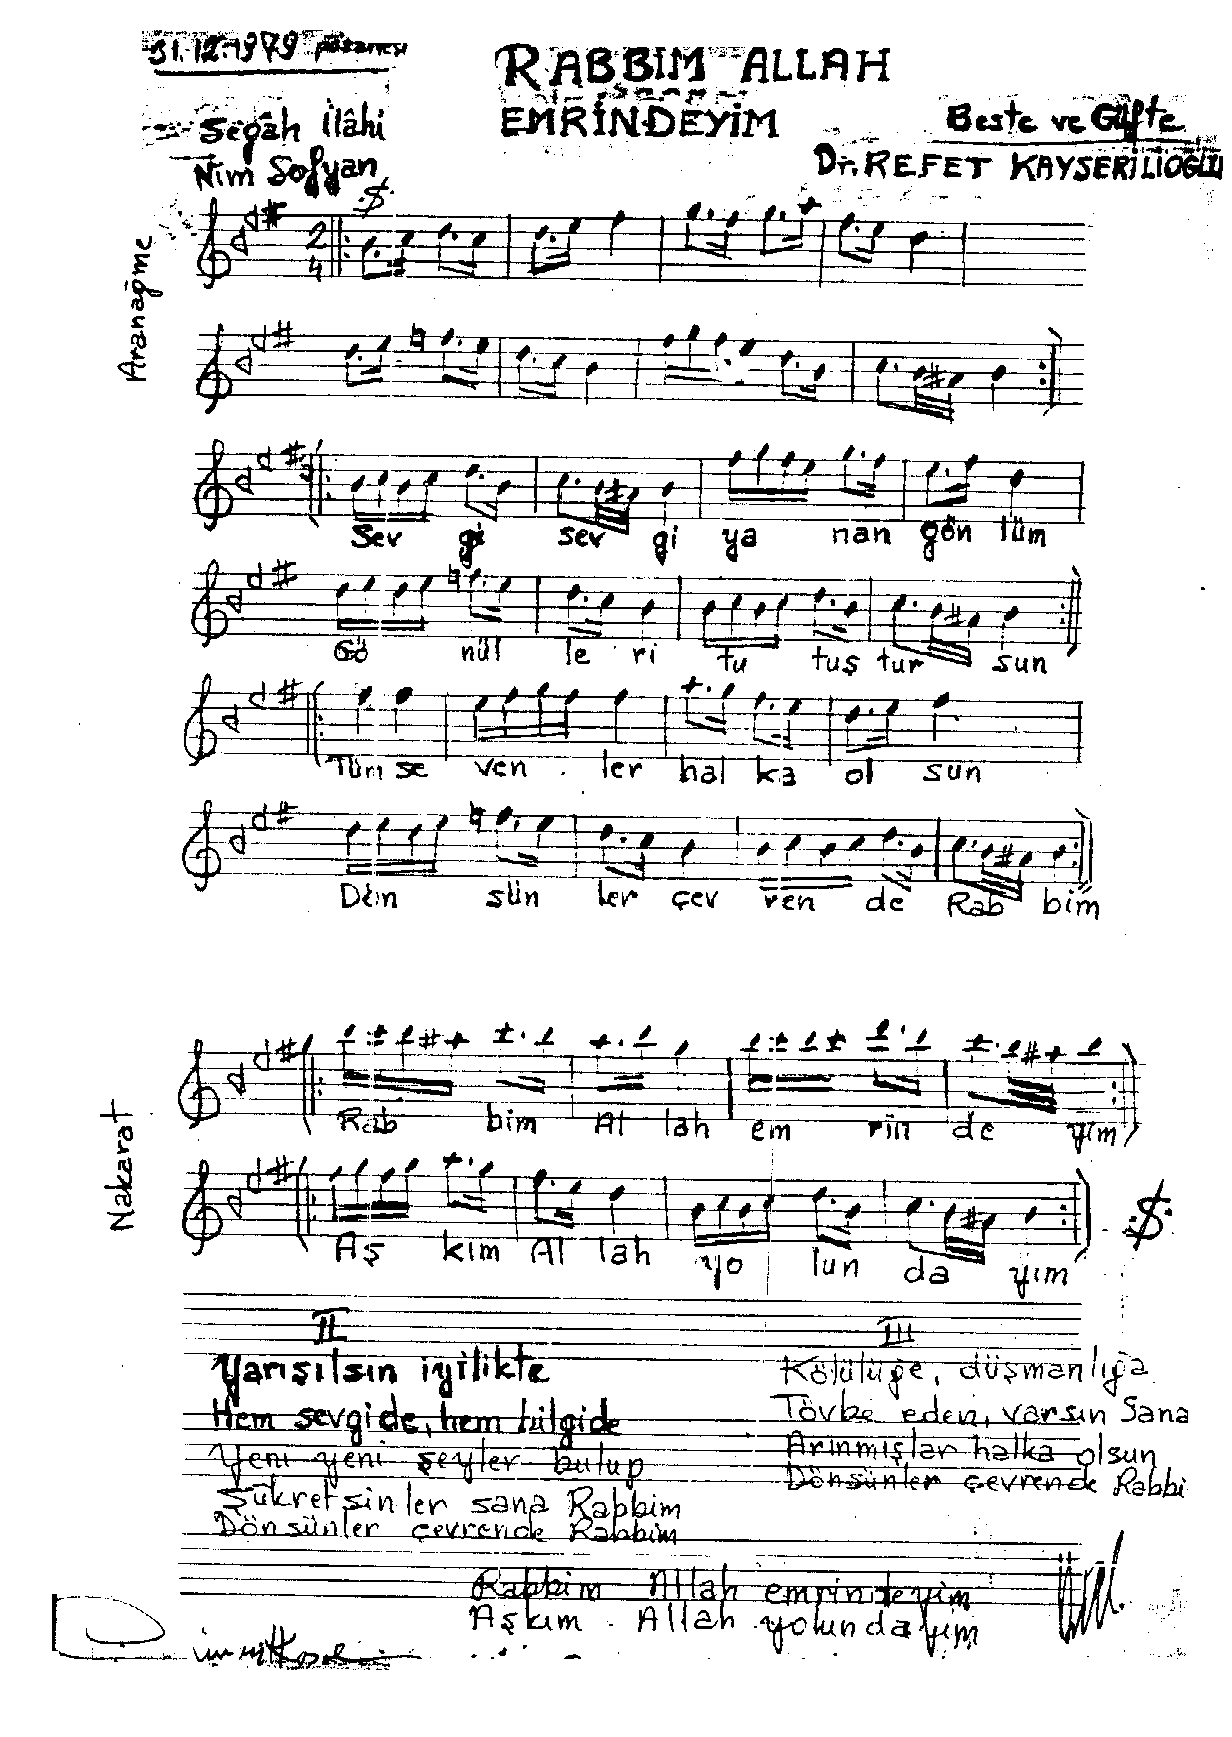 31.12.1979 pazartesi
RABBIM ALLAH
EMRİNDEYİM
Segâh İlâhi
Nim Sofyan
Beste ve Güfte
Dr. REFET KAYSERİLİOĞLU
Aranağme
2
4
Sev gi sev gi ya nan gön lüm
Gö nül le ri tu tuş tur sun
Tüm se ven . ler hal ka ol sun
Dön sün ler çev ren de Rab bim
Nakarat
Rab bim Al lah em rin de yim
Aş kım Al lah yo lun da yım
II
Yarışılsın iyilikte
Hem sevgide, hem bilgide
Yeni yeni şeyler bulup
Şükretsinler sana Rabbim
Dönsünler çevrende Rabbim
III
Kötülüğe, düşmanlığa
Tövbe eden, varsın Sana
Arınmışlar halka olsun
Dönsünler çevrende Rabbi
Rabbim Allah emrindeyim
Aşkım . Allah yolundayım